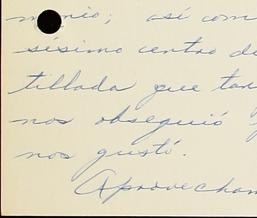 así com
sísimo centro de
tillada que tan
nos obsequió y
nos gustó.
Aprovecham